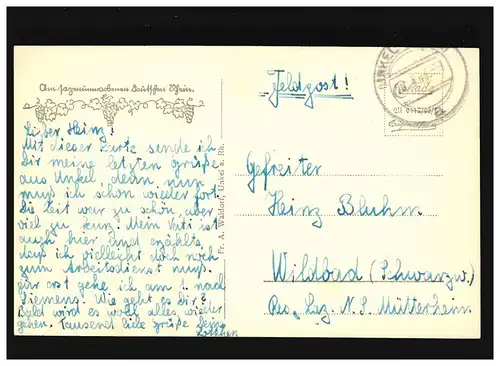 Am sagenumwobenen deutschen Rhein.
Lieber Heinz!
Mit dieser Karte sende ich
Dir meine letzten Grüße
aus Unkel denn, nun
muß ich schon wieder fort.
Die Zeit war zu schön, aber
viel zu kurz. Mein Vati ist
auch hier und erzählte,
daß ich vielleicht doch noch
zum Arbeitsdienst muß.
Für erst gehe ich am 1. nach
Siemens. Wie geht es Dir?
Bald wird es wohl alles wieder
gehen. Tausend liebe Grüße Deine
Fr. A. Waldorf, Unkel a. Rh.
UNKEL
Feldpost!
Gefreiter
Heinz Bluhm
Wildbad (Schwarzw.)
Res. Laz. N.S. Mütterheim